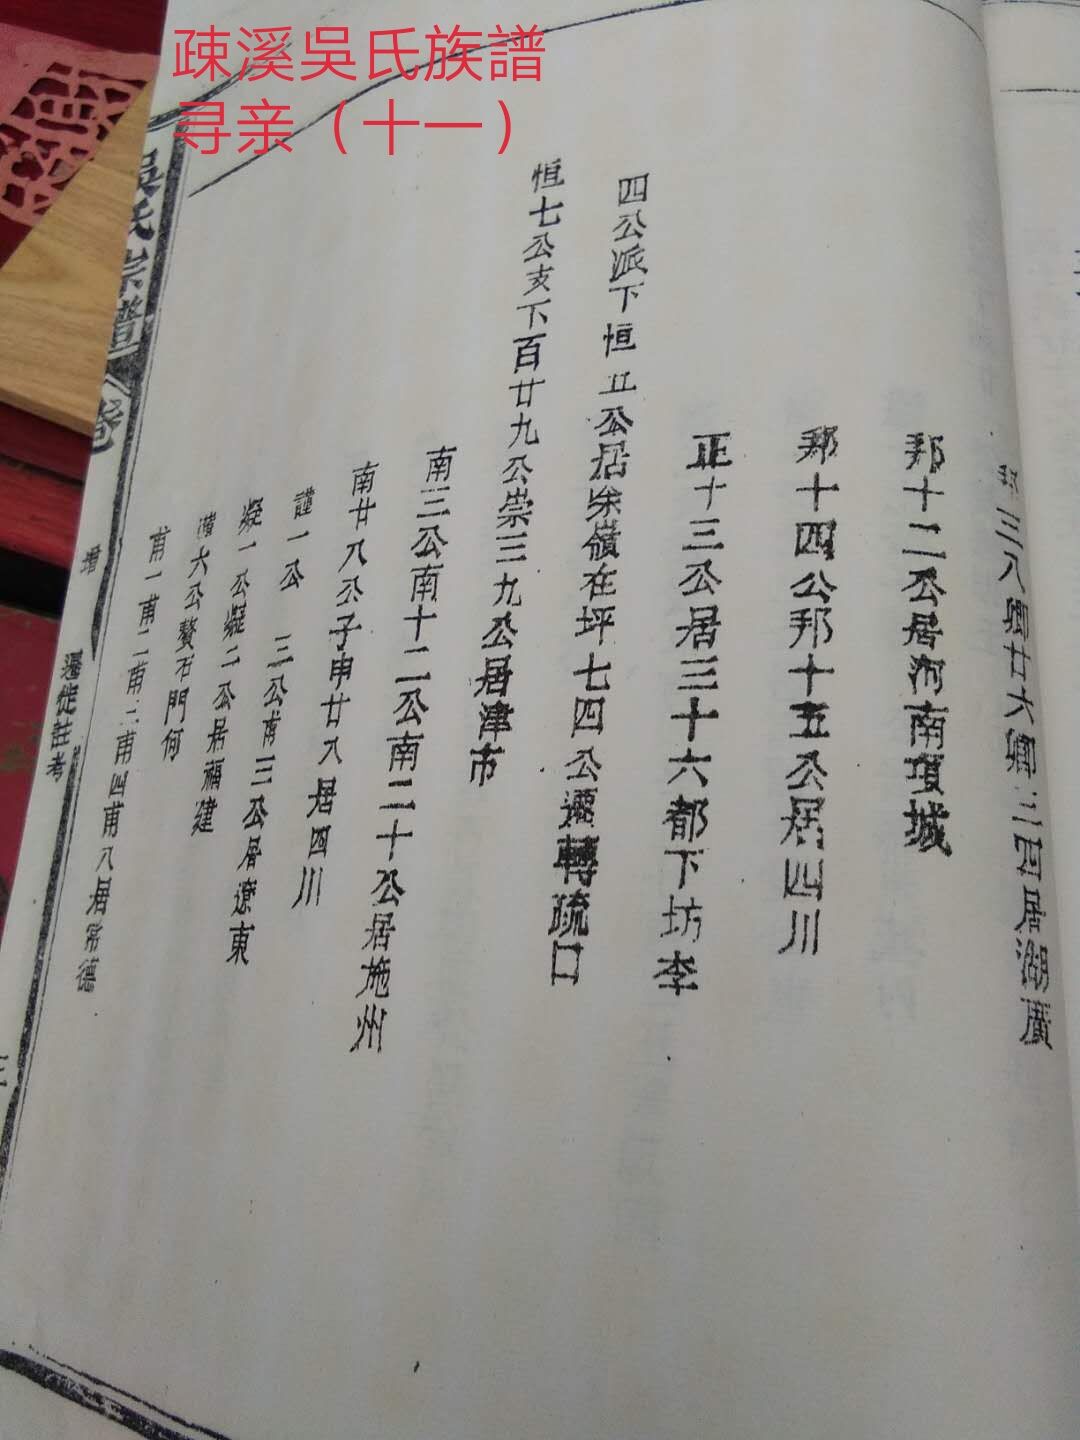 疎溪吳氏族譜
寻亲（十一）
邦三八卿廿六卿三四居湖廣
邦十二公居河南項城
邦十四公邦十五公居四川
正十三公居三十六都下坊李
四公派下恒五公居嶺在坪七四公遷轉疏口
恒七公支下百廿九公崇三九公居津市
南三公南十二公南二十公居施州
南廿八公子申廿八居四川
謹一公 三公甫三公居遼東
凝一公凝二公居福建
六公贅石門何
甫一甫二甫三甫四甫八居常德
吳氏宗譜
卷
增
遷徙註考